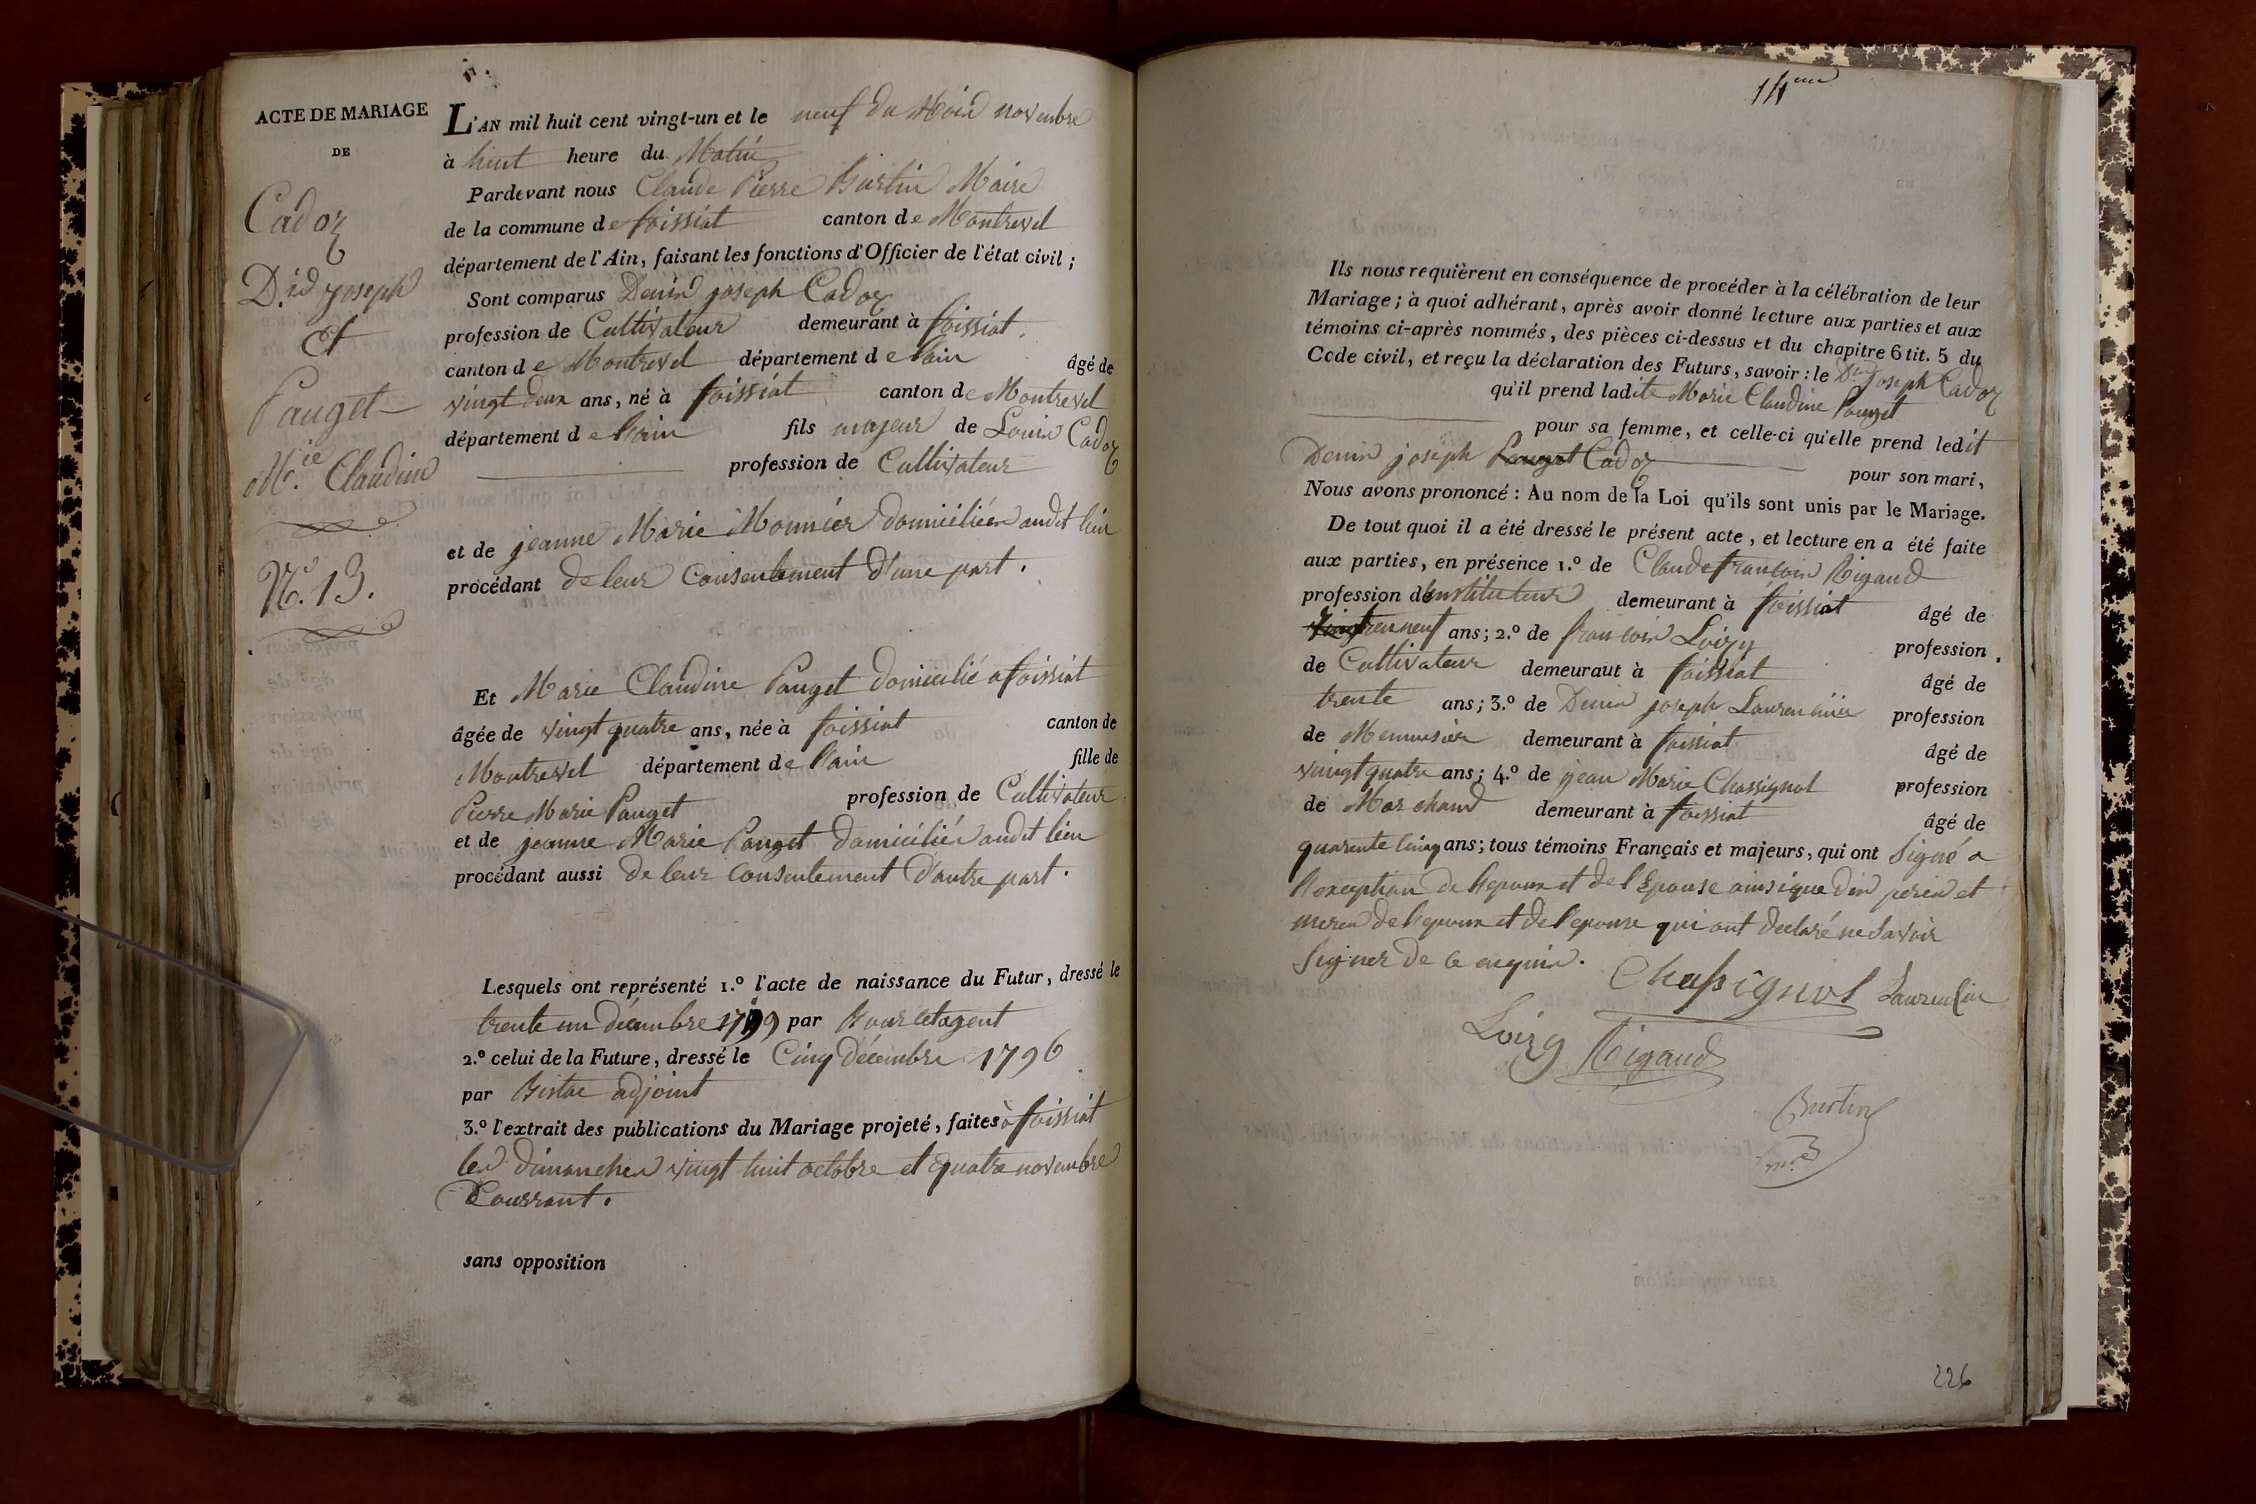 ACTE DE MARIAGE
DE
Cadoz
D.is joseph
et
Pauget
M.ie Claudine
N.o 13.
L'AN mil huit cent vingt-un et le neuf du Mois novembre
à huit heure du Matin
Pardevant nous Claude Pierre Burtin Maire
de la commune de foissiat canton de Montrevel
département de l'Ain, faisant les fonctions d'Officier de l'état civil ;
Sont comparus Denis joseph Cadoz
profession de Cultivateur demeurant à foissiat.
canton de Montrevel département de l'ain âgé de
vingt deux ans, né à foissiat canton de Montrevel
département de l'ain fils majeur de Louis Cadoz
profession de Cultivateur
et de jeanne Marie Monnier domiciliées audit lieu
procédant de leur Consentement d'une part.
Et Marie Claudine Pauget domicilié a foissiat
âgée de vingt quatre ans, née à foissiat canton de
Montrevel département de l'ain fille de
Pierre Marie Pauget profession de Cultivateur
et de jeanne Marie Pauget domiciliés audit lieu
procédant aussi de leur Consentement d'autre part.
Lesquels ont représenté 1.º l'acte de naissance du Futur, dressé le
trente un décembre 1799 par agent
2.º celui de la Future, dressé le Cinq Décembre 1796
par adjoint
3.º l'extrait des publications du Mariage projeté, faites à foissiat
les dimanches vingt huit octobre et quatre novembre
Courrant.
sans opposition
14me
Ils nous requièrent en conséquence de procéder à la célébration de leur
Mariage ; à quoi adhérant, après avoir donné lecture aux parties et aux
témoins ci-après nommés, des pièces ci-dessus et du chapitre 6 tit. 5 du
Code civil, et reçu la déclaration des Futurs, savoir : le Denis joseph Cadoz
qu'il prend ladite Marie Claudine Pauget
pour sa femme, et celle-ci qu'elle prend ledit
Denis joseph Pauget Cadoz pour son mari,
Nous avons prononcé : Au nom de la Loi qu'ils sont unis par le Mariage.
De tout quoi il a été dressé le présent acte, et lecture en a été faite
aux parties, en présence 1.º de Claude francois Rigaud
profession d'instituteur demeurant à foissiat âgé de
ans ; 2.º de francois Loizy profession
de Cultivateur demeuraut à foissiat âgé de
trente ans ; 3.º de Denis joseph Laurencin profession
de Menuisier demeurant à foissiat âgé de
vingt quatre ans ; 4.º de jean Marie Chassignol profession
de Marchand demeurant à foissiat âgé de
quarente cinq ans ; tous témoins Français et majeurs, qui ont Signé a
l'exception de l'epoux et de l'Epouse ainsi que des peres et
meres de l'epoux et de l'epouse qui ont declaré ne Savoir
Signer de ce enquis.
Chassignol Laurencin
Loizy Rigaud
Burtin
m.re
226